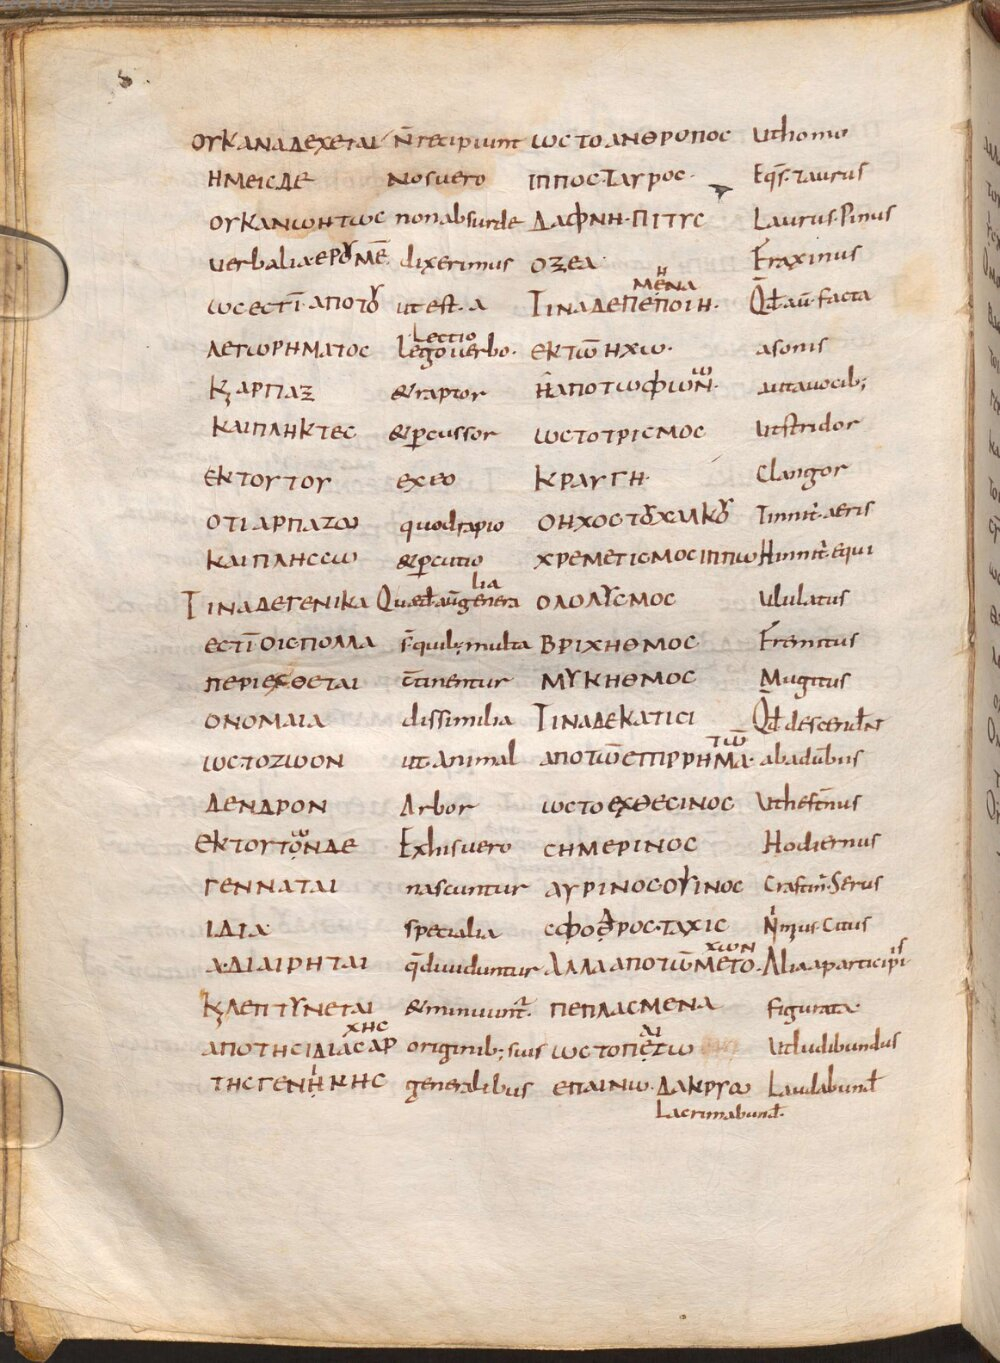 ΟΥΚ ΑΝΑΔΕΧΕΤΑΙ n̄ recipiunt ΩC ΤΟ ΑΝΘΡΟΠΟC Ut homo
ΗΜΕΙC ΔΕ nos uero ΙΠΠΟC·ΤΑΥΡΟC· Eqs̄· taurus
ΟΥΚ ΑΝΩΗΤΩC non absurde ΔΑΦΝΗ·ΠΙΤΥC Laurus· Pinus
uerbalia ΕΡΟΥΜΕ̄ dixerimus ΟΞΕΑ· Fraxinus
ΩC ΕCΤῙ· ΑΠΟ ΤΟΥ ut est· a ΤΙΝΑ ΔΕ ΠΕΠΟΙΗ·ΜΕΝΑ Qd̄ au̅· facta
ΛΕΓΩ ΡΗΜΑΤΟC lego uerbo· Lectio ΕΚ ΤΩ̄ ΗΧΩ· a sonis
Κ̧ ΑΡΠΑΞ & raptor Η ΑΠΟ ΤΩ ΦΩΝ̄· aut a uocib;
ΚΑΙ ΠΛΗΚΤΕC & p̄cussor ΩC ΤΟ ΤΡΙCΜΟC Ut stridor
ΕΚ ΤΟΥΤΟΥ ex eo ΚΡΑΥΓΗ· Clangor
ΟΤΙ ΑΡΠΑΖΩ quod rapio Ο ΗΧΟC ΤΟΥ ΧΑΛΚΟΥ Tinnit̄· aeris
ΚΑΙ ΠΛΗCCΩ & p̄cutio ΧΡΕΜΕΤΙCΜΟC ΙΠΠΩ Hinnit̄· equi
ΤΙΝΑ ΔΕ ΓΕΝΙΚΑ Quaed̄ au̅ generalia ΟΛΟΛΥCΜΟC Ululatus
ΕCΤῙ ΟΙC ΠΟΛΛΑ s̄ quib; multa ΒΡΙΧΗΘΜΟC Fremitus
ΠΕΡΙΕΧΘΕΤΑΙ c̄tinentur ΜΥΚΗΘΜΟC Mugitus
ΟΝΟΜΑΙΑ dissimilia ΤΙΝΑ ΔΕ ΚΑΤΙCΙ Qd̄ descend̄nt
ΩC ΤΟ ΖΩΟΝ ut· animal ΑΠΟ ΤΩ̄ ΕΠΙΡΡΗΜΑ·ΤΩ̄ ab adūbus
ΔΕΝΔΡΟΝ Arbor ΩC ΤΟ ΕΧΘΕCΙΝΟC Ut hest̄nus
ΕΚ ΤΟΥΤΟΝ ΔΕ Ex his uero CΗΜΕΡΙΝΟC Hodiernus
ΓΕΝΝΑΤΑΙ nascuntur ΑΥΡΙΝΟC ΟΨΙΝΟC Crastin̄· Serus
ΙΔΙΑ specialia CΦΟΔΡΟC·ΤΑΧΙC Nimius· Citus
Α·ΔΙΑΙΡΗΤΑΙ q̄ diuiduntur ΑΛΛΑ ΑΠΟ ΤΩ̄ ΜΕΤΟ·ΧΩΝ Alia a participiis
Κ̧ ΛΕΠΤΥΝΕΤΑΙ & minuunt̄· ΠΕΠΛΑCΜΕΝΑ figurata·
ΑΠΟ ΤΗC ΙΔΙΑC ΑΡΧΗC originib; suis ΩC ΤΟ ΠΑΙΖΩ Ut ludibundus
ΤΗC ΓΕΝΙΚΗC generalibus ΕΠΑΙΝΩ·ΔΑΚΡΥΩ Laudabund̄
Lacrimabund̄·